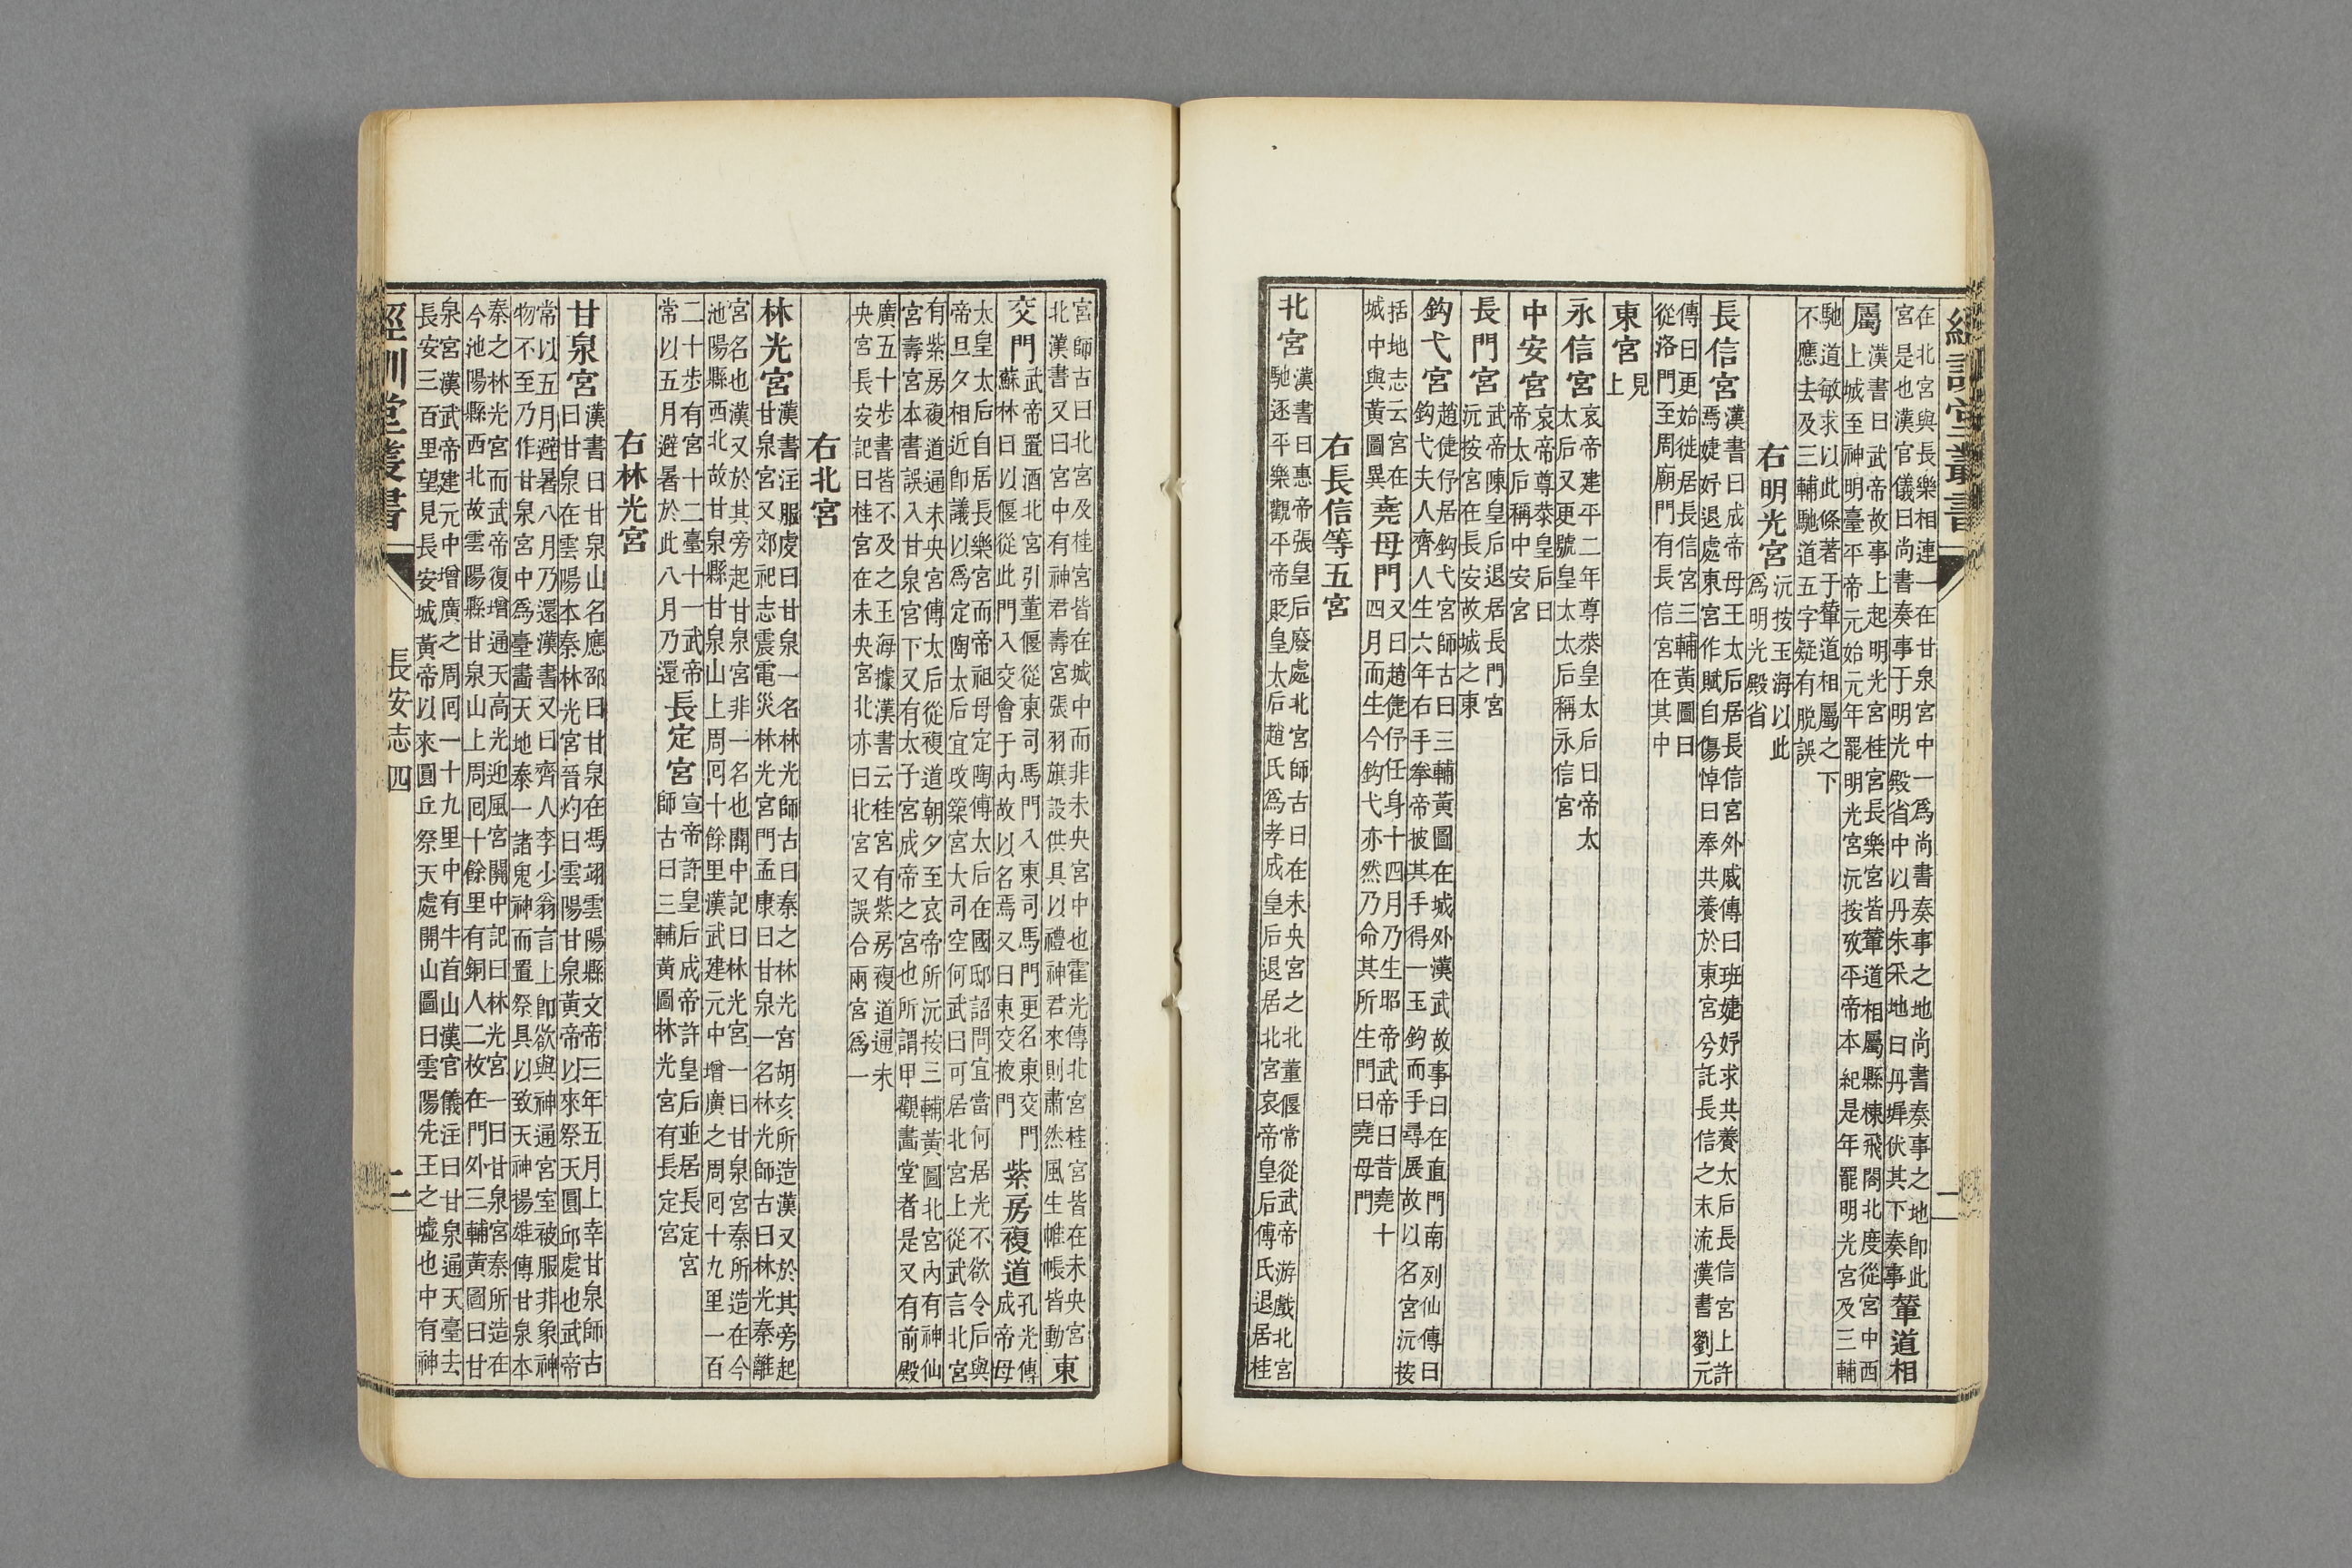 經訓堂叢書
二
在北宮與長樂相連一在甘泉宮中一爲尚書奏事之地尚書奏事之地卽此
宮是也漢官儀曰尚書奏事于明光殿省中以丹朱采地曰丹墀伏其下奏事輦道相
屬漢書曰武帝故事上起明光宮桂宮長樂宮皆輦道相屬縣棟飛閣北度從宮中西
上城至神明臺平帝元始元年罷明光宮沅按攷平帝本紀是年罷明光宮及三輔
馳道敏求以此條著于輦道相屬之下
不應去及三輔馳道五字疑有脫誤
右明光宮沅按玉海以此
爲明光殿省
長信宮漢書曰成帝母王太后居長信宮外戚傳曰班婕妤求共養太后長信宮上許
焉婕妤退處東宮作賦自傷悼曰奉共養於東宮兮託長信之末流漢書劉元
傳曰更始徙居長信宮三輔黃圖曰
從洛門至周廟門有長信宮在其中
東宮見
上
永信宮哀帝建平二年尊恭皇太后曰帝太
太后又更號皇太太后稱永信宮
中安宮哀帝尊恭皇后曰
帝太后稱中安宮
長門宮武帝陳皇后退居長門宮
沅按宮在長安故城之東
鈎弋宮趙倢伃居鈎弋宮師古曰三輔黃圖在城外漢武故事曰在直門南列仙傳曰
鈎弋夫人齊人生六年右手拳帝披其手得一玉鈎而手尋展故以名宮沅按
括地志云宮在
城中與黃圖異堯母門又曰趙倢伃任身十四月乃生昭帝武帝曰昔堯十
四月而生今鈎弋亦然乃命其所生門曰堯母門
右長信等五宮
北宮漢書曰惠帝張皇后廢處北宮師古曰在未央宮之北董偃常從武帝游戲北宮
馳逐平樂觀平帝貶皇太后趙氏爲孝成皇后退居北宮哀帝皇后傅氏退居桂
宮師古曰北宮及桂宮皆在城中而非未央宮中也霍光傳北宮桂宮皆在未央宮
北漢書又曰宮中有神君壽宮張羽旗設供具以禮神君來則肅然風生帷帳皆動東
交門武帝置酒北宮引董偃從東司馬門入東司馬門更名東交門
蘇林曰以偃從此門入交會于內故以名焉又曰東交掖門紫房複道孔光傳
成帝母
太皇太后自居長樂宮而帝祖母定陶傅太后在國邸詔問宜當何居光不欲令后與
帝旦夕相近卽議以爲定陶太后宜攺築宮大司空何武曰可居北宮上從武言北宮
有紫房複道通未央宮傅太后從複道朝夕至哀帝所沅按三輔黃圖北宮內有神仙
宮壽宮本書誤入甘泉宮下又有太子宮成帝之宮也所謂甲觀畫堂者是又有前殿
廣五十步書皆不及之玉海據漢書云桂宮有紫房複道通未
央宮長安記曰桂宮在未央宮北亦曰北宮又誤合兩宮爲一
右北宮
林光宮漢書注服虔曰甘泉一名林光師古曰秦之林光宮胡亥所造漢又於其旁起
甘泉宮又郊祀志震電災林光宮門孟康曰甘泉一名林光師古曰林光秦離
宮名也漢又於其旁起甘泉宮非一名也關中記曰林光宮一曰甘泉宮秦所造在今
池陽縣西北故甘泉縣甘泉山上周囘十餘里漢武建元中增廣之周囘十九里一百
二十步有宮十二臺十一武帝
常以五月避暑於此八月乃還長定宮宣帝許皇后成帝許皇后並居長定宮
師古曰三輔黃圖林光宮有長定宮
右林光宮
甘泉宮漢書曰甘泉山名應邵曰甘泉在馮翊雲陽縣文帝三年五月上幸甘泉師古
曰甘泉在雲陽本秦林光宮晉灼曰雲陽甘泉黃帝以來祭天圓邱處也武帝
常以五月避暑八月乃還漢書又曰齊人李少翁言上卽欲與神通宮室被服非象神
物不至乃作甘泉宮中爲臺畫天地泰一諸鬼神而置祭具以致天神揚雄傳甘泉本
秦之林光宮而武帝復增通天高光迎風宮關中記曰林光宮一曰甘泉宮秦所造在
今池陽縣西北故雲陽縣甘泉山上周囘十餘里有銅人二枚在門外三輔黃圖曰甘
泉宮漢武帝建元中增廣之周囘一十九里中有牛首山漢官儀注曰甘泉通天臺去
長安三百里望見長安城黃帝以來圓丘祭天處開山圖曰雲陽先王之墟也中有神
經訓堂叢書
長安志四
二